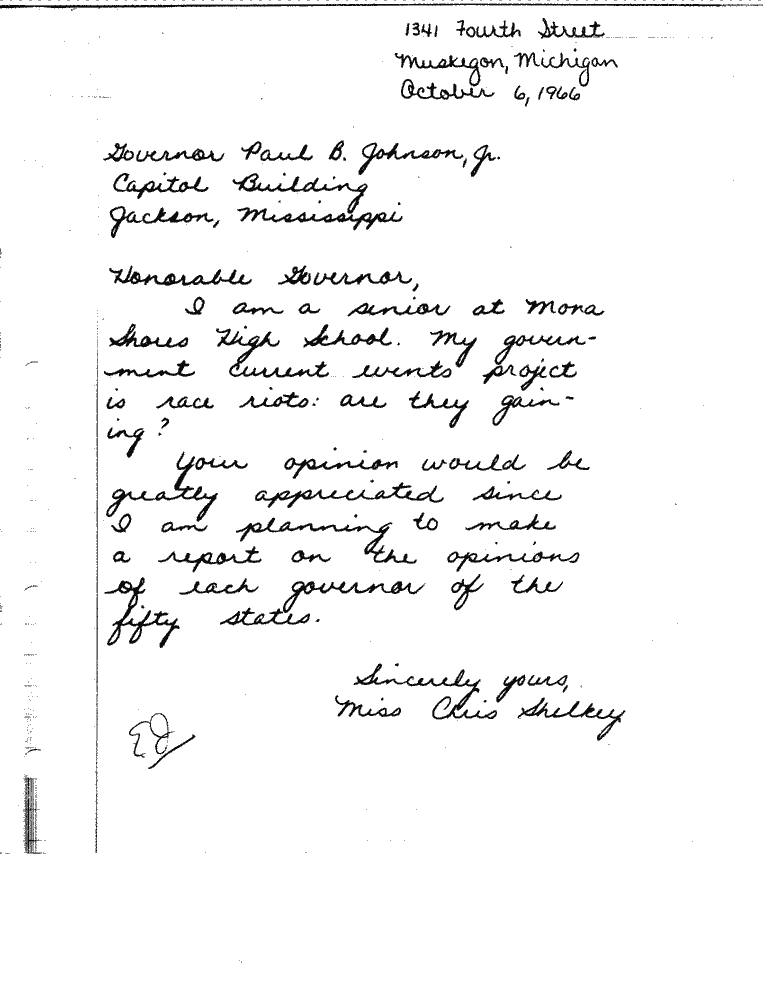 1341 Fourth Street
Muskegon, Michigan
October 6, 1966
Governor Paul B. Johnson, Jr.
Capitol Building
Jackson, Mississippi
Honorable Governor,
I am a senior at Mona
Shores High School. My govern-
ment current events project
is race riots: are they gain-
ing?
Your opinion would be
greatly appreciated since
I am planning to make
a report on the opinions
of each governor of the
fifty states.
Sincerely yours,
Miss Chris Shelkey